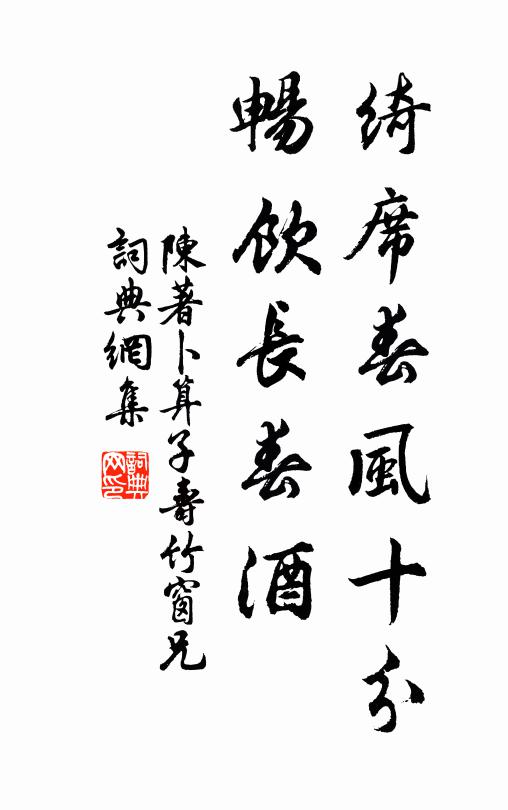 綺席春風十分
暢飲長春酒
陳著卜算子壽竹窗兄
詞典網集